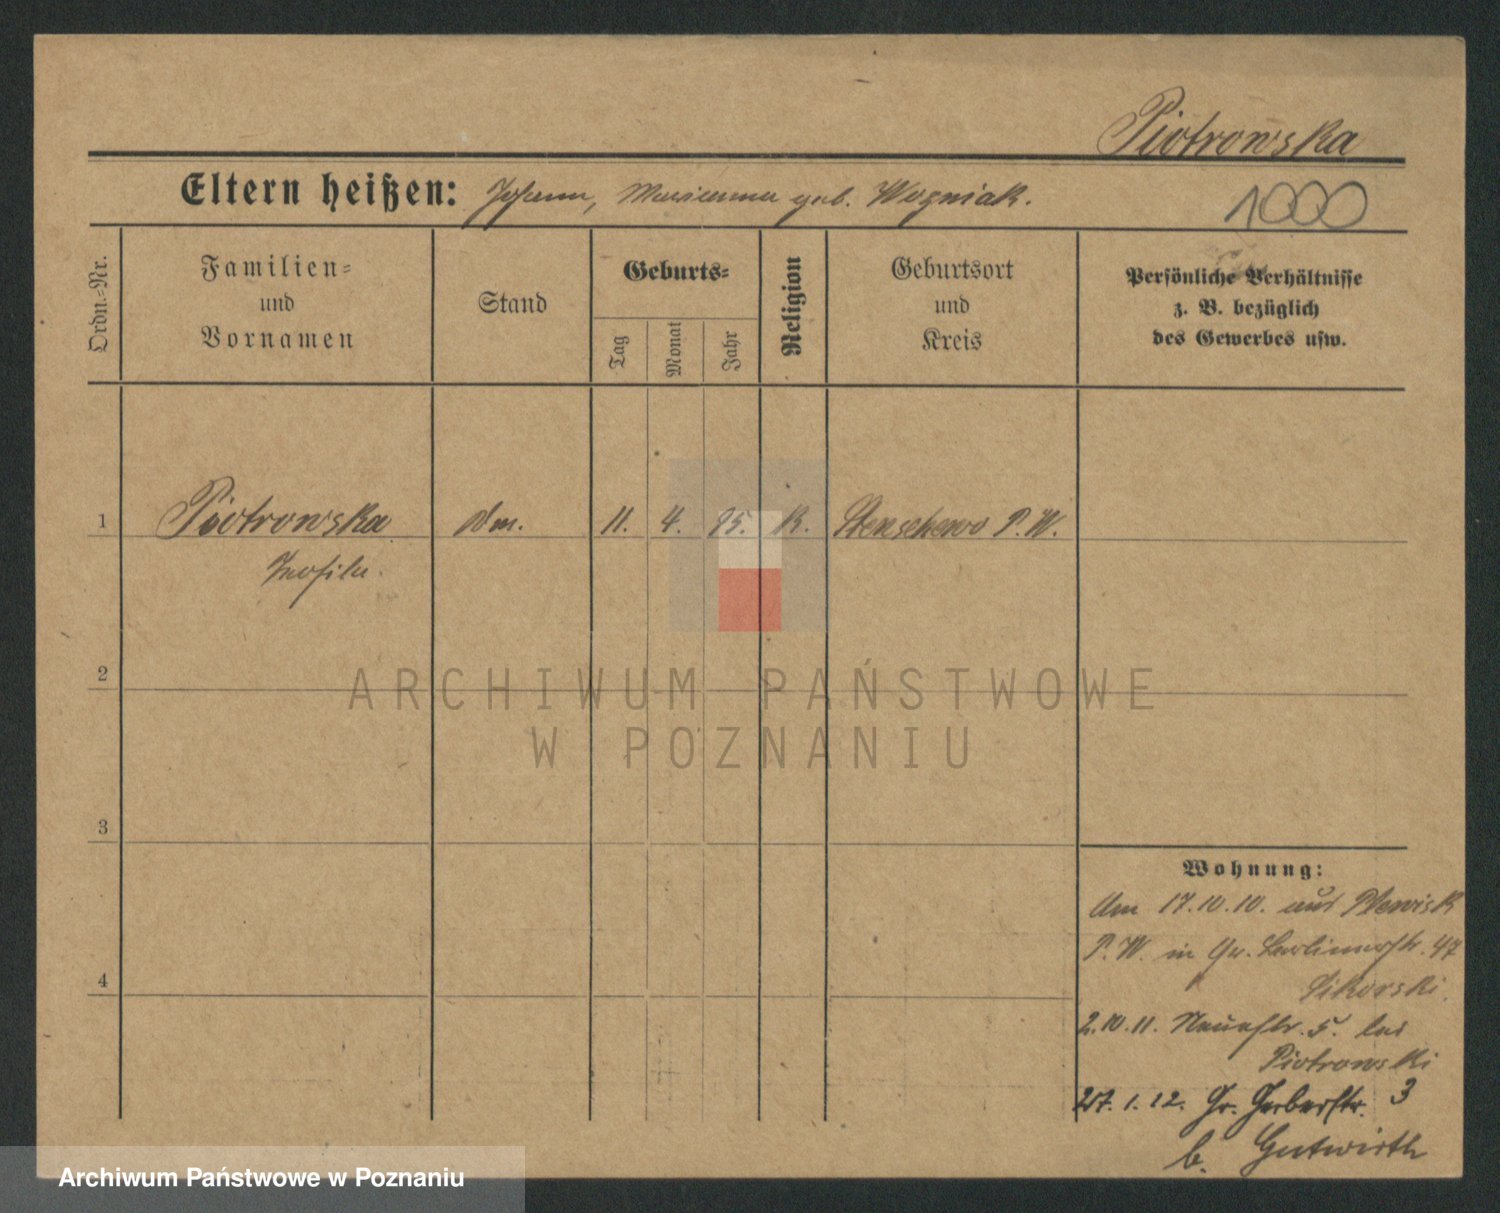 Piotrowska
Eltern heißen: Johann, Marianna geb. Wozniak.
1000
Ordn.-Nr.
Familien-
und
Vornamen
Stand
Geburts-
Tag
Monat
Jahr
Religion
Geburtsort
und
Kreis
Persönliche Verhältnisse
z. B. bezüglich
des Gewerbes usw.
1 Piotrowska Dm. 11. 4. 95. K. Stenschewo P. W.
2
ARCHIWUM PAŃSTWOWE
W POZNANIU
3
Wohnung:
Am 17.10.10. aus Plewisk
P. W. in Gr. Berlinerstr. 47
Sikorski.
4
2.10.11. Neuestr. 5. bei
Piotrowski
27.1.12. Gr. Gerberstr. 3
b. Gutwirth
Archiwum Państwowe w Poznaniu